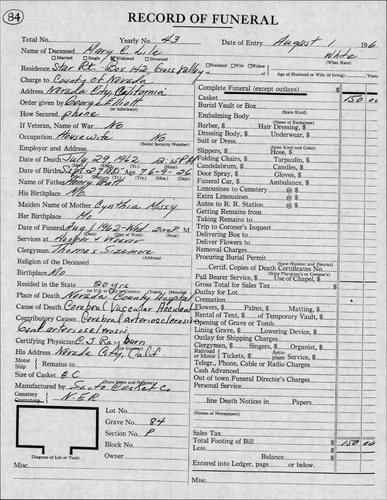 84
RECORD OF FUNERAL
Total No. Yearly No. 43 Date of Entry August 1 196
Name of Deceased Mary C. Lile White
Married Single Widowed Divorced (What Race)
Residence Star Rt. Box 142, Grass Valley Husband Wife Widow
or Age of Husband or Wife (if living) Years
Charge to County of Nevada
Address Nevada City, California
Order given by George Elliott
(or informant)
How Secured phone
If Veteran, of War No
Occupation Housewife No
(Social Security Number)
Employer and Address
Date of Death July 29 1962 12:15 P.M.
Date of Birth Sept 1885 76-9-26
Name of Father Henry
His Birthplace Mo
Maiden Name of Mother Cynthia Missy
Her Birthplace Mo
Date of Funeral Aug 1 1962-Wed 2:00 P. M.
Services at Hooper & Weaver
Clergyman Thomas Sizemore
(Address)
Religion of the Deceased
Birthplace Mo
Resided in the State 20 yrs
Place of Death Nevada County Hospital
Cause of Death Cerebral Vascular Accident
Contributory Causes Cerebral arteriosclerosis
Gen'l arteriosclerosis
Certifying Physician C J Rayburn
His Address Nevada City, Calif
Motor Ship Remains to
Size of Casket B.C.
Manufactured by Casket Co
Cemetery N.E.R.
Lot No.
Grave No. 84
Section No. P
Block No.
Owner
Diagram of Lot or Vault
Misc.
Complete Funeral (except outlays) $
Casket 150 00
Burial Vault or Box
(State Kind)
Embalming Body
Barber, $ Hair Dressing, $
Dressing Body, $ Underwear, $
Suit or Dress
(State Kind and Color)
Slippers, $ Hose, $
Folding Chairs, $ Tarpaulin, $
Candelabrum, $ Candles, $
Door Spray, $ Gloves, $
Funeral Car, $ Ambulance, $
Limousines to Cemetery @ $
Extra Limousines @ $
Autos to R. R. Station @ $
Getting Remains from
Taking Remains to
Trip to Coroner's Inquest
Delivering Box to
Deliver Flowers to
Removal Charges
Procuring Burial Permit
(Name Number and District)
Certif. Copies of Death Certificates No.
Pall Bearer Service, $ Use of Chapel, $
Gross Total for Sales Tax $
Outlay for Lot
Cremation
Flowers, $ Palms, $ Matting, $
Rental of Tent, $ of Temporary Vault, $
Opening of Grave or Tomb
Lining Grave, $ Lowering Device, $
Outlay for Shipping Charges
Clergymen, $ Singers, $ Organist, $
Railroad or Motor Tickets, $ Aeroplane Service, $
Telegr., Phone, Cable or Radio Charges
Cash Advanced
Out of town Funeral Director's Charges
Personal Service
line Death Notices in Papers
(Names of Newspapers)
Sales Tax
Total Footing of Bill $ 150 00
Less
Balance $
Entered into Ledger, page or below.
Misc.